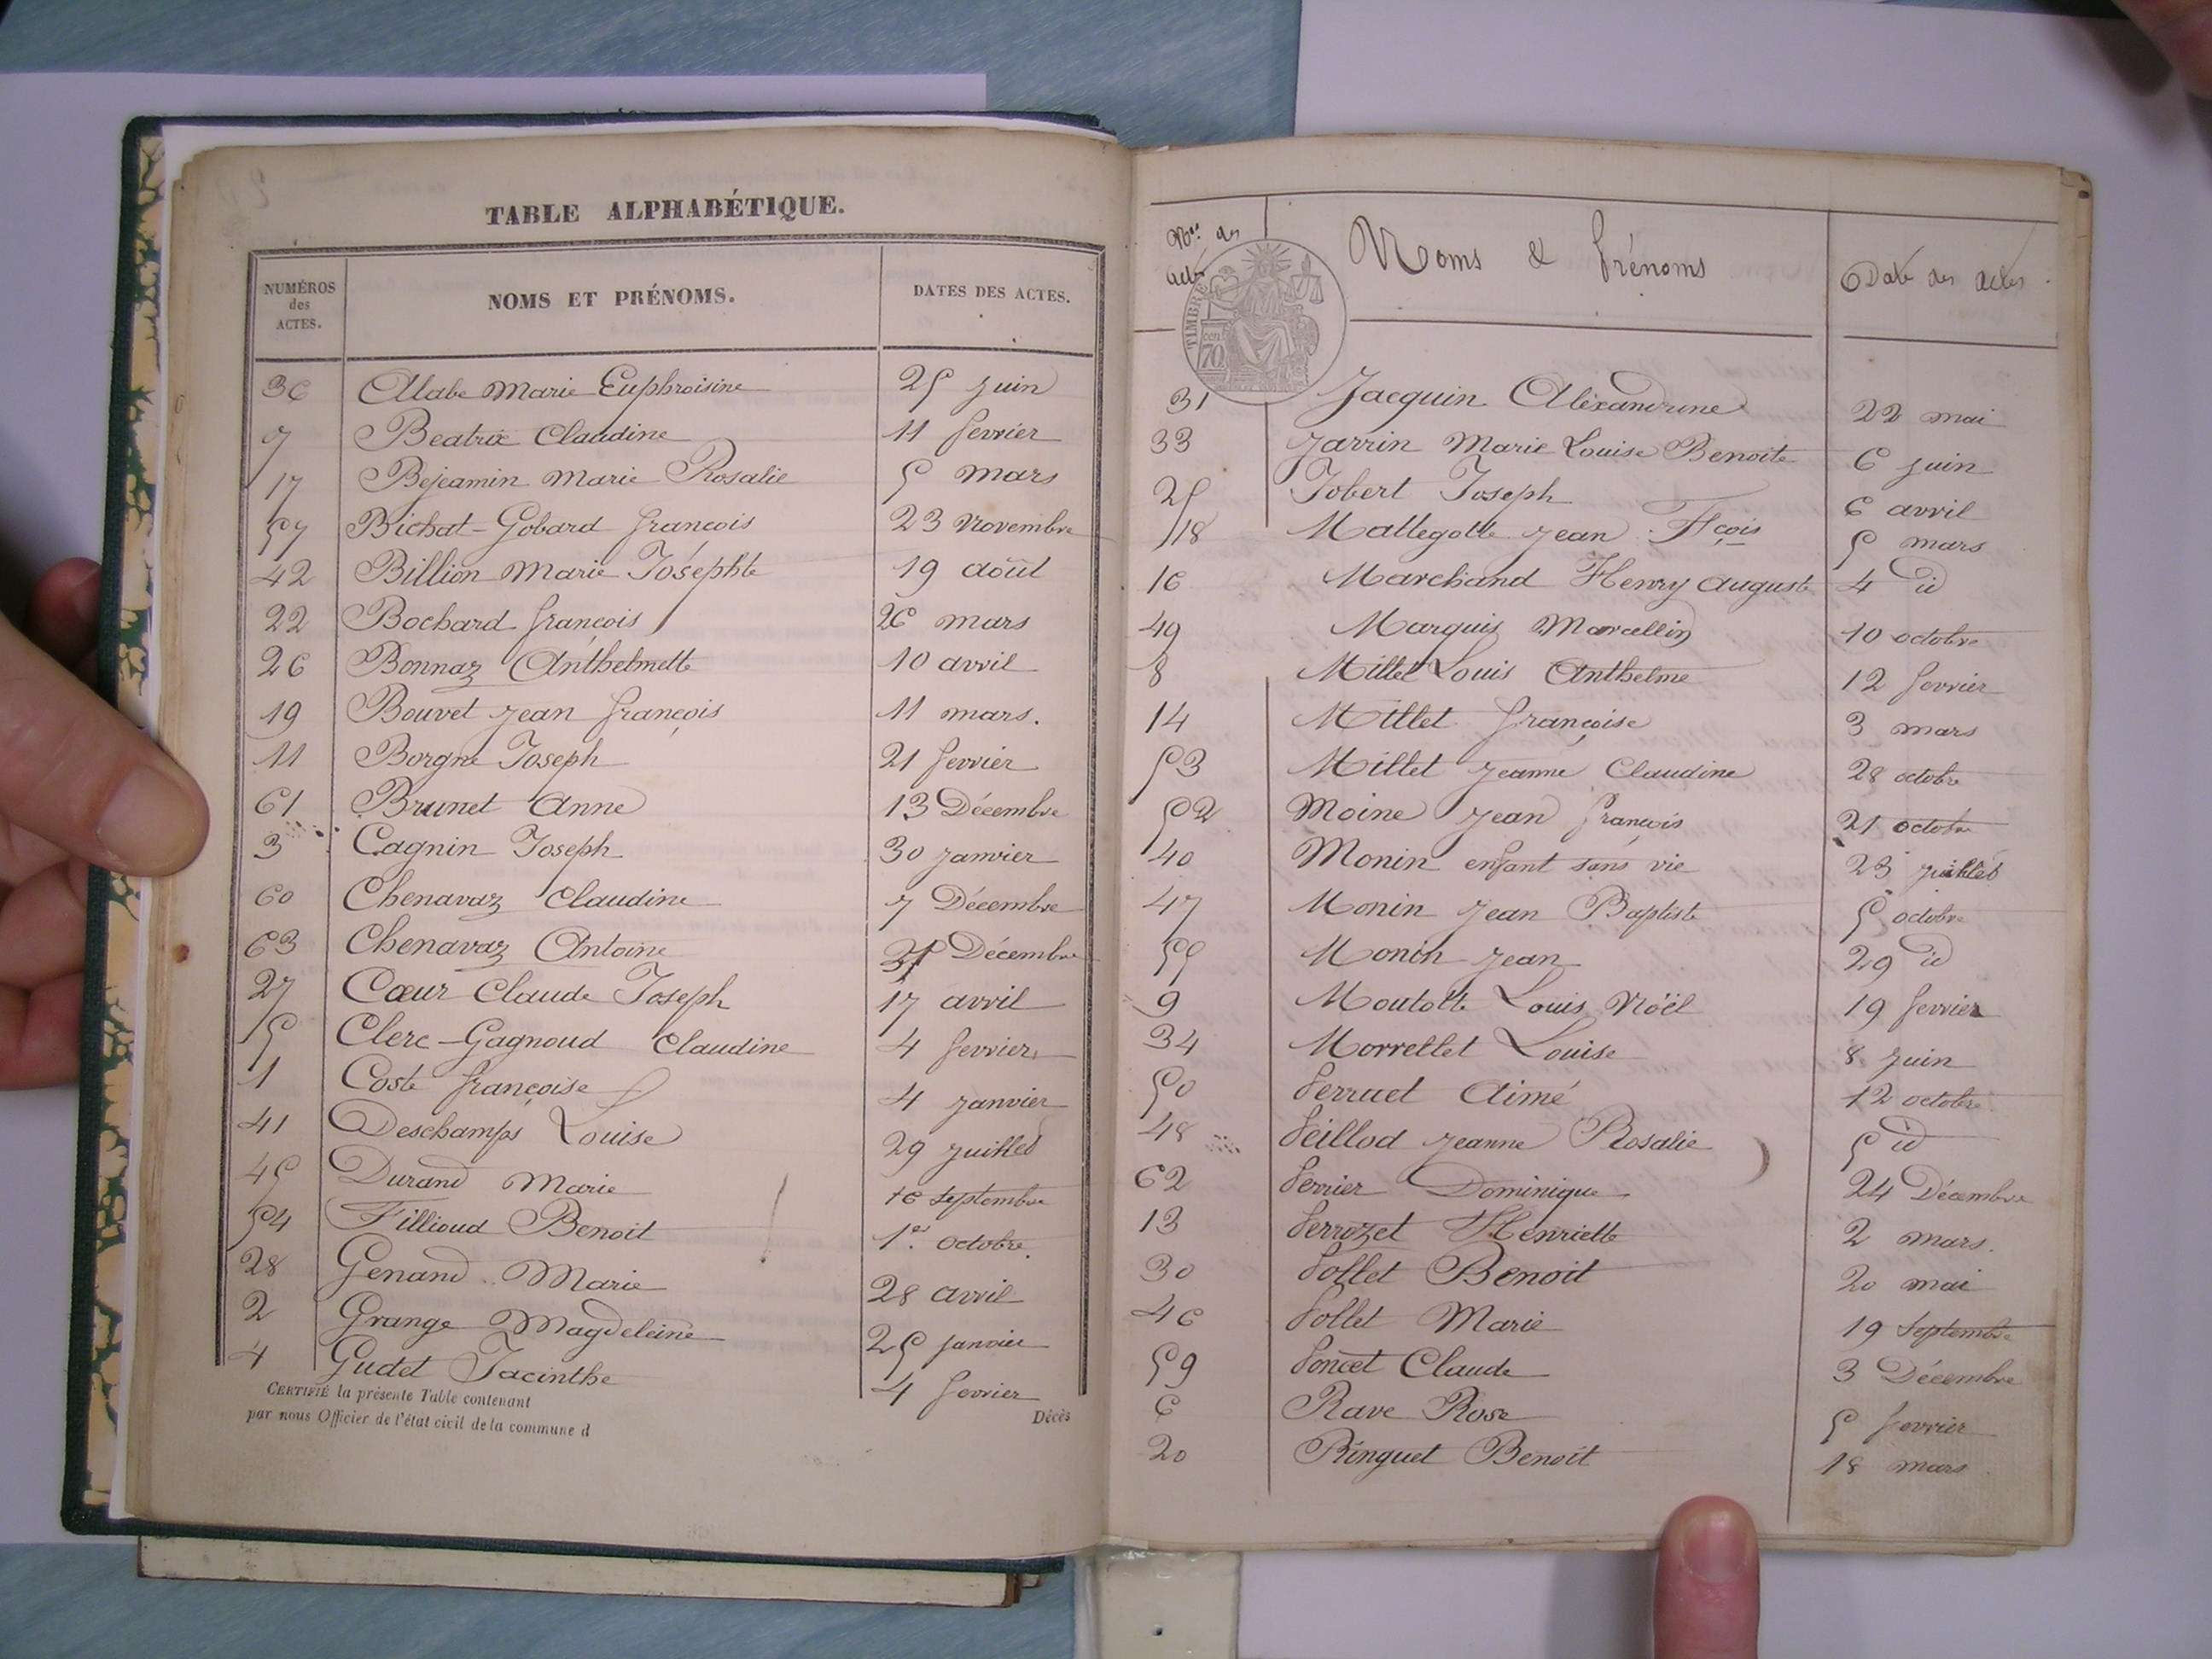 TABLE ALPHABÉTIQUE.
NUMÉROS des ACTES. NOMS ET PRÉNOMS. DATES DES ACTES.
36 Alabe Marie Euphroisine 25 juin
7 Beatrix Claudine 11 fevrier
17 Bejeamin Marie Rosalie 5 mars
57 Bichat-Gobard françois 23 Novembre
42 Billion Marie Joséphte 19 août
22 Bochard françois 26 mars
26 Bonnaz Anthelmette 10 avril
19 Bouvet Jean françois 11 mars.
11 Borgne Joseph 21 fevrier
61 Brunet Anne 13 Décembre
3 Cagnin Joseph 30 janvier
60 Chenavaz Claudine 7 Décembre
63 Chenavaz Antoine 31 Décembre
27 Cœur Claude Joseph 17 avril
5 Clerc-Gagnoud Claudine 4 fevrier
1 Coste françoise 4 janvier
41 Deschamps Louise 29 juillet
45 Durand Marie 16 septembre
54 Fillioud Benoit 1er octobre.
28 Genand Marie 28 avril
2 Grange Magdeleine 25 janvier
4 Gudet Jacinthe 4 fevrier
CERTIFIÉ la présente Table contenant Décès
par nous Officier de l'état civil de la commune d
Nos des actes Noms & Prénoms Date des actes
TIMBRE
70
31 Jacquin Aléxandrine 22 mai
33 Jarrin Marie Louise Benoite 6 juin
25 Jobert Joseph 6 avril
18 Mallegotte Jean Fçois 5 mars
16 Marchand Henry Auguste 4 id
49 Marquis Marcellin 10 octobre
8 Millet Louis Anthelme 12 fevrier
14 Millet françoise 3 mars
53 Millet Jeanne Claudine 28 octobre
52 Moine Jean françois 21 octobre
40 Monin enfant sans vie 23 juillet
47 Monin Jean Baptiste 5 octobre
55 Monin Jean 29 id
9 Moutotte Louis Noël 19 fevrier
34 Morrellet Louise 8 juin
50 Perruet Aimé 12 octobre
48 Peillod Jeanne Rosalie 5 id
62 Perrier Dominique 24 Décembre
13 Perrozet Henriette 2 mars.
30 Pollet Benoit 20 mai
46 Pollet Marie 19 septembre
59 Poncet Claude 3 Décembre
6 Rave Rose 5 fevrier
20 Ringuet Benoit 18 mars